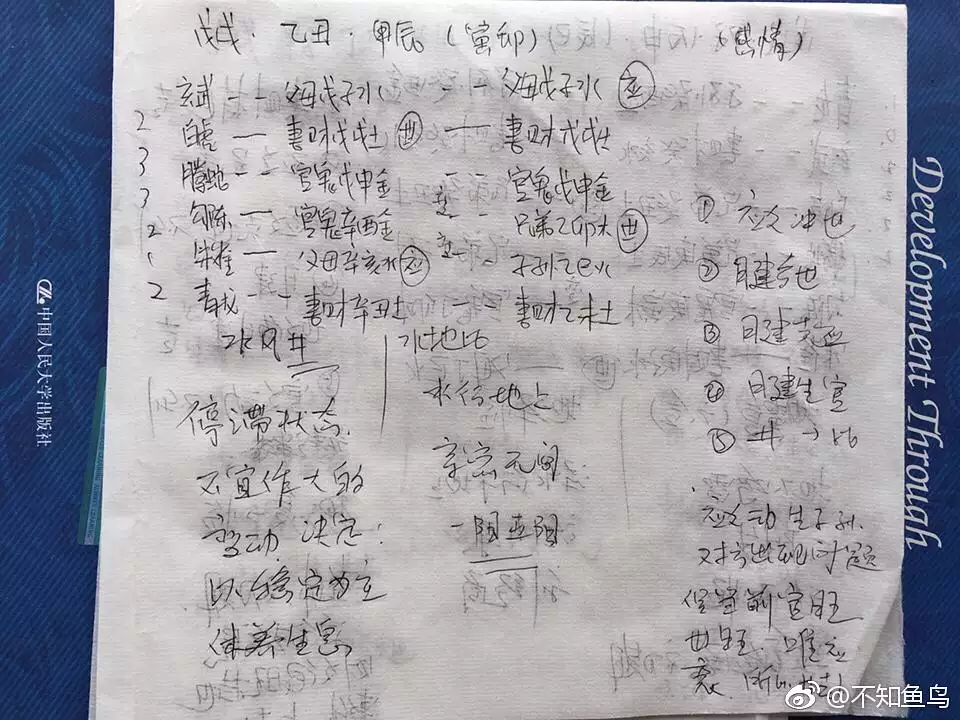 戊戌·乙丑·甲辰(寅卯)(感情)
玄武 -- 父母戊子水 -- 父母戊子水 应
2 白虎 — 妻财戊戌土 世 — 妻财戊戌土
3 腾蛇 -- 官鬼戊申金 -- 官鬼戊申金
3 勾陈 — 官鬼辛酉金 -- 兄弟乙卯木 世
2 朱雀 — 父母辛亥水 应 -- 子孙乙巳火
2 青龙 -- 妻财辛丑土 妻财乙未土
水风井
水地比
停滞状态.
不宜作大的
变动 决定:
以稳定为主
休养生息
水行地上
亲密无间
一阳五阴
① 应 冲世
② 日建合世
③ 月建克应
④ 月建生官
⑤ 井→比
应动生子孙.
对方出现问题
但当前官旺
世旺. 唯应
衰.
中国人民大学出版社
Development Through
@不知鱼鸟